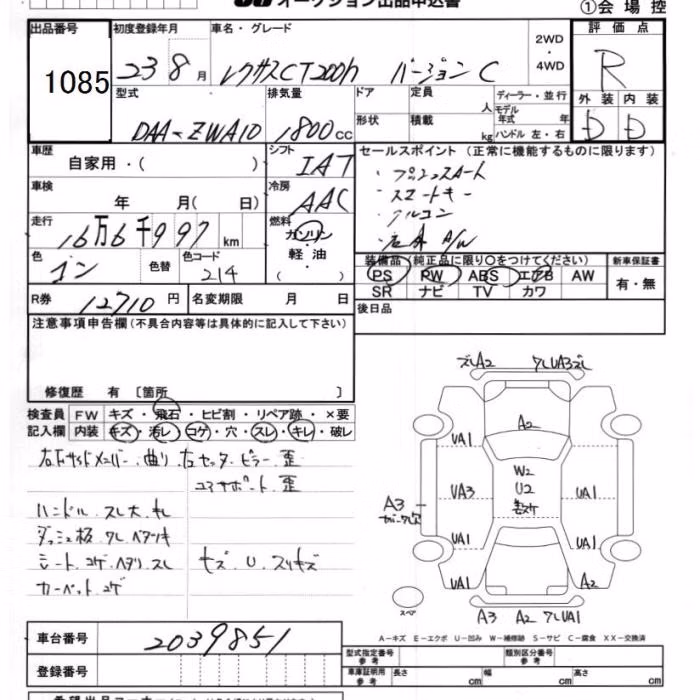 オークション出品申込書
①会場控
出品番号 初度登録年月 車名・グレード 2WD ・ 4WD 評価点
1085 23 8月 レクサスCT200h バージョンC R
型式 排気量 ドア 定員 人 ディーラー・並行 外装 内装
DAA-ZWA10 1800cc 形状 積載 kg モデル年式 年 ハンドル 左・右 D D
車歴 自家用・( ) シフト IAT セールスポイント(正常に機能するものに限ります)
・プッシュスタート
車検 年 月( 日) 冷房 AAC ・スマートキー
・アルミ
走行 16万6千997km 燃料 ガソリン・軽油・( )
色 色替 色コード 214
装備品(純正品に限り○をつけてください) 新車保証書
PS PW ABS エアB AW 有・無
SR ナビ TV カワ
R券 12710円 名変期限 月 日 後日品
注意事項申告欄(不具合内容等は具体的に記入して下さい)
修復歴 有 〔箇所 〕
検査員 FW キズ・飛石・ヒビ割・リペア跡・×要
記入欄 内装 キズ・汚レ・コゲ・穴・スレ・キレ・破レ
右下サイドメンバー曲り 右センターピラー歪
コアサポート歪
ハンドル スレ大 キレ
ダッシュ板 ワレ ベタツキ
シート コゲ ヘタリ スレ キズ U スリキズ
カーペット コゲ
ズレA2 ワレUA3ズレ
A2
UA1 UA1
W2
U2
UA3 UA1
A3
UA1 UA1
UA1 A2
スペア
A3 A2 ワレUA1
A-キズ E-エクボ U-凹み W-補修跡 S-サビ C-腐食 XX-交換済
車台番号 2039851
型式指定番号 参考 類別区分番号 参考
登録番号 車庫証明用 参考 長さ cm 幅 cm 高さ cm
希望出品コーナー